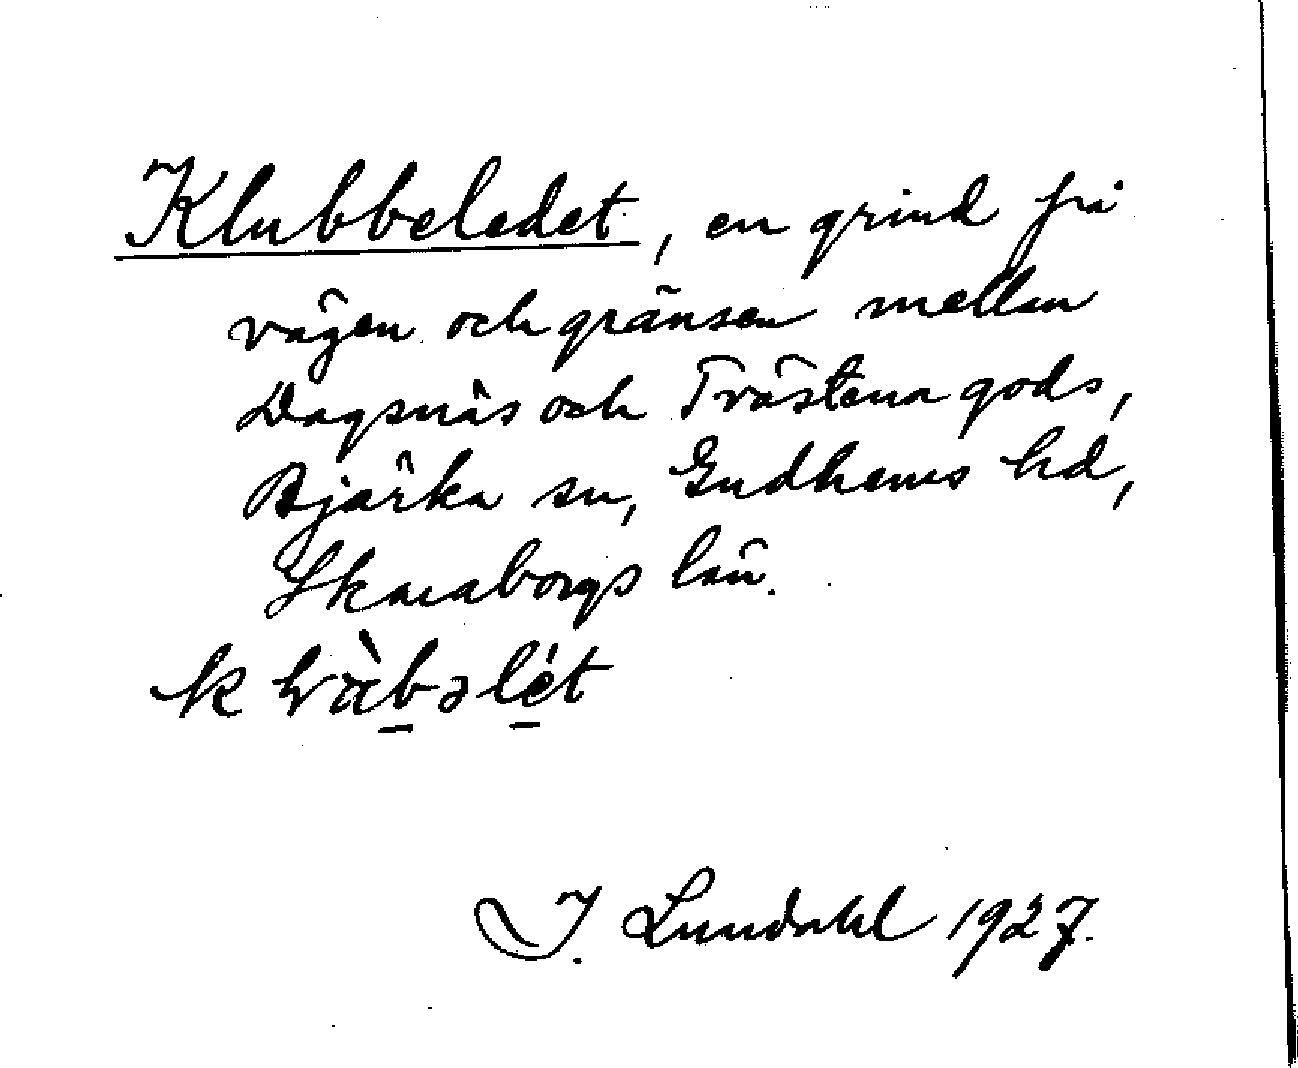 Klubbeledet, en grind på
vägen och gränsen mellan
Dagsnäs och Trästena gods,
Bjärka sn, Gudhems hd,
Skaraborgs län.
I. Lundahl 1927.